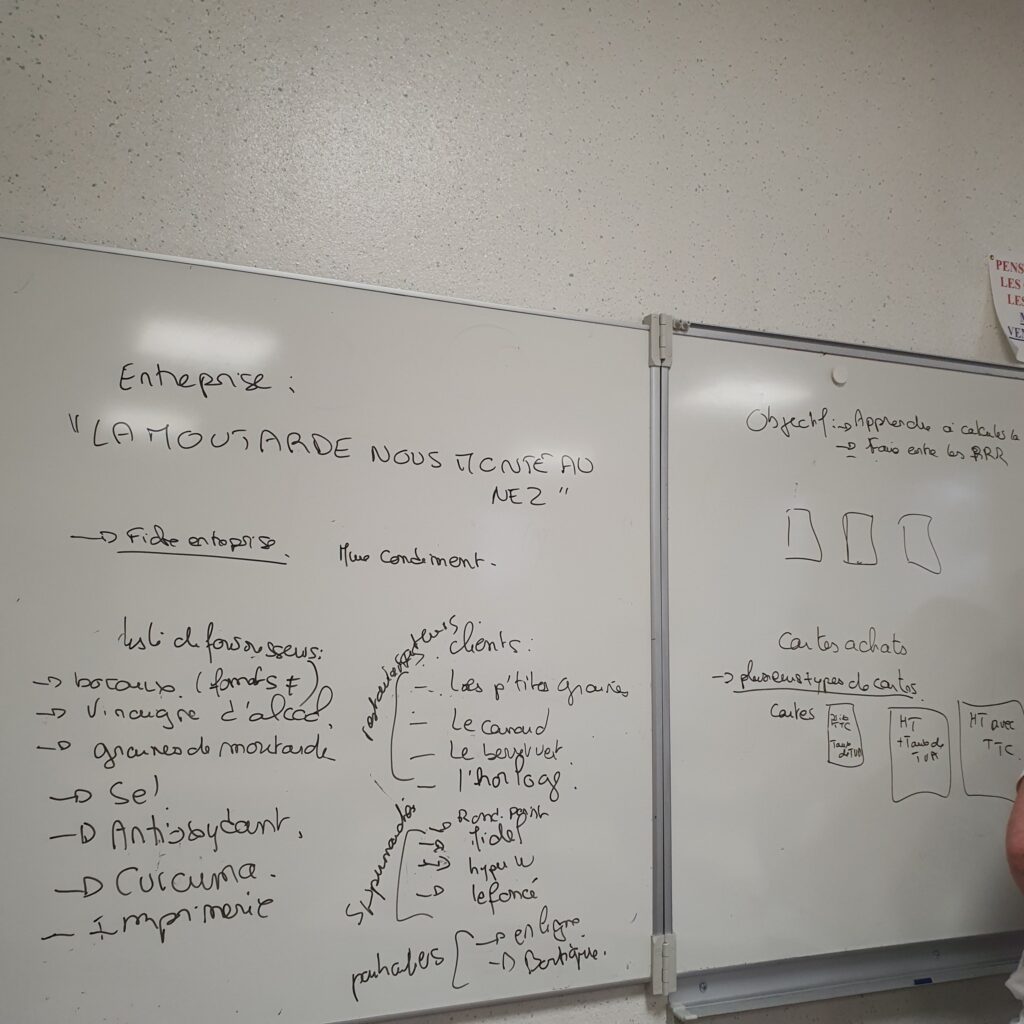 Entreprise :
"LA MOUTARDE NOUS MONTE AU
NEZ"
→ Fiche entreprise.
condiment.
fournisseurs:
→ bocaux. (
→ Vinaigre d'alcool.
→ graines de moutarde
→ Sel
→ Antioxydant.
→ Curcuma.
- Imprimerie
restaurateurs
clients:
- Les p'tites graines
- Le canard
- Le
- l'horloge.
Rond point
→ lidl
→ hyper U
→
→ en ligne
→ Boutique.
Objectif: → Apprendre à calculer la
→ entre les RRR
Cartes achats
→ plusieurs types de cartes
Cartes
TTC
Taux
de TVA
HT
+ Taux de
TVA
HT avec
TTC
PENS
LES
LES
VEN